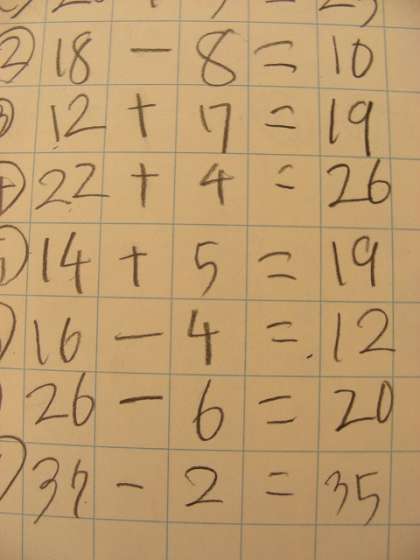 ② 18 - 8 = 10
③ 12 + 7 = 19
④ 22 + 4 = 26
⑤ 14 + 5 = 19
16 - 4 = 12
26 - 6 = 20
37 - 2 = 35